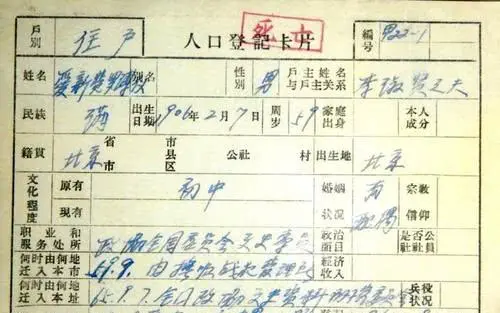 死亡
戶別 住戶 人口登記卡片 編号 男22-1
姓名 愛新覺罗溥儀 別名 性別 男 戶主姓名与戶主关系 李淑贤之夫
民族 满 出生日期 1906年2月7日 周岁 59 家庭出身 本人成分
籍貫 北京 省市 市县区 公社 村 出生地 北京
文化程度 原有 初中 婚姻状况 有配偶 宗教信仰
現有
职业和服务处所 政协全国委员会文史专员 政治面目 是否公社社員
何时由何地迁入本市 59.9. 由抚顺战犯管理所 經济收入
何时由何地迁入本址 65.9.7. 全国政协文史资料研究委员会 兵役状况